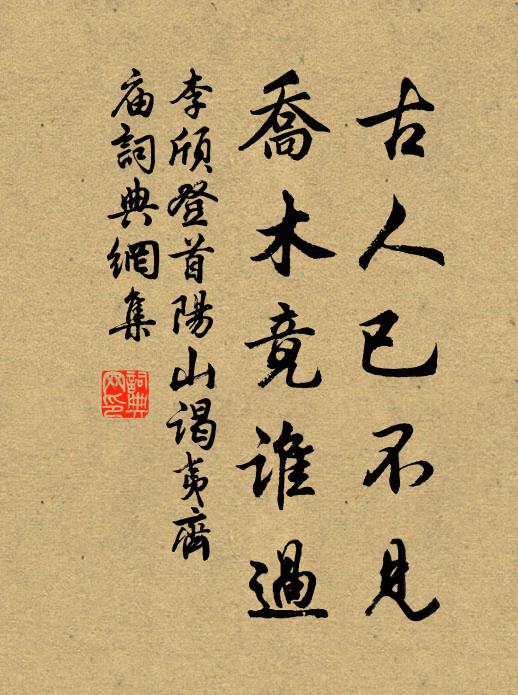 古人已不見
喬木竟誰過
李頎登首陽山謁夷齊
庙詞典網集
詞典
网印